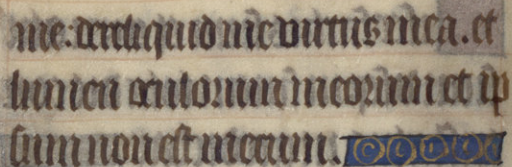 me. dereliquid me virtus mea. et
lumen oculorum meorum et ip
sum non est mecum.